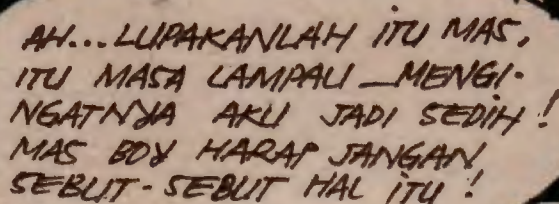 AH...LUPAKANLAH ITU MAS,
ITU MASA LAMPAU _MENGI-
NGATNYA AKU JADI SEDIH!
MAS BOY HARAP JANGAN
SEBUT-SEBUT HAL ITU!